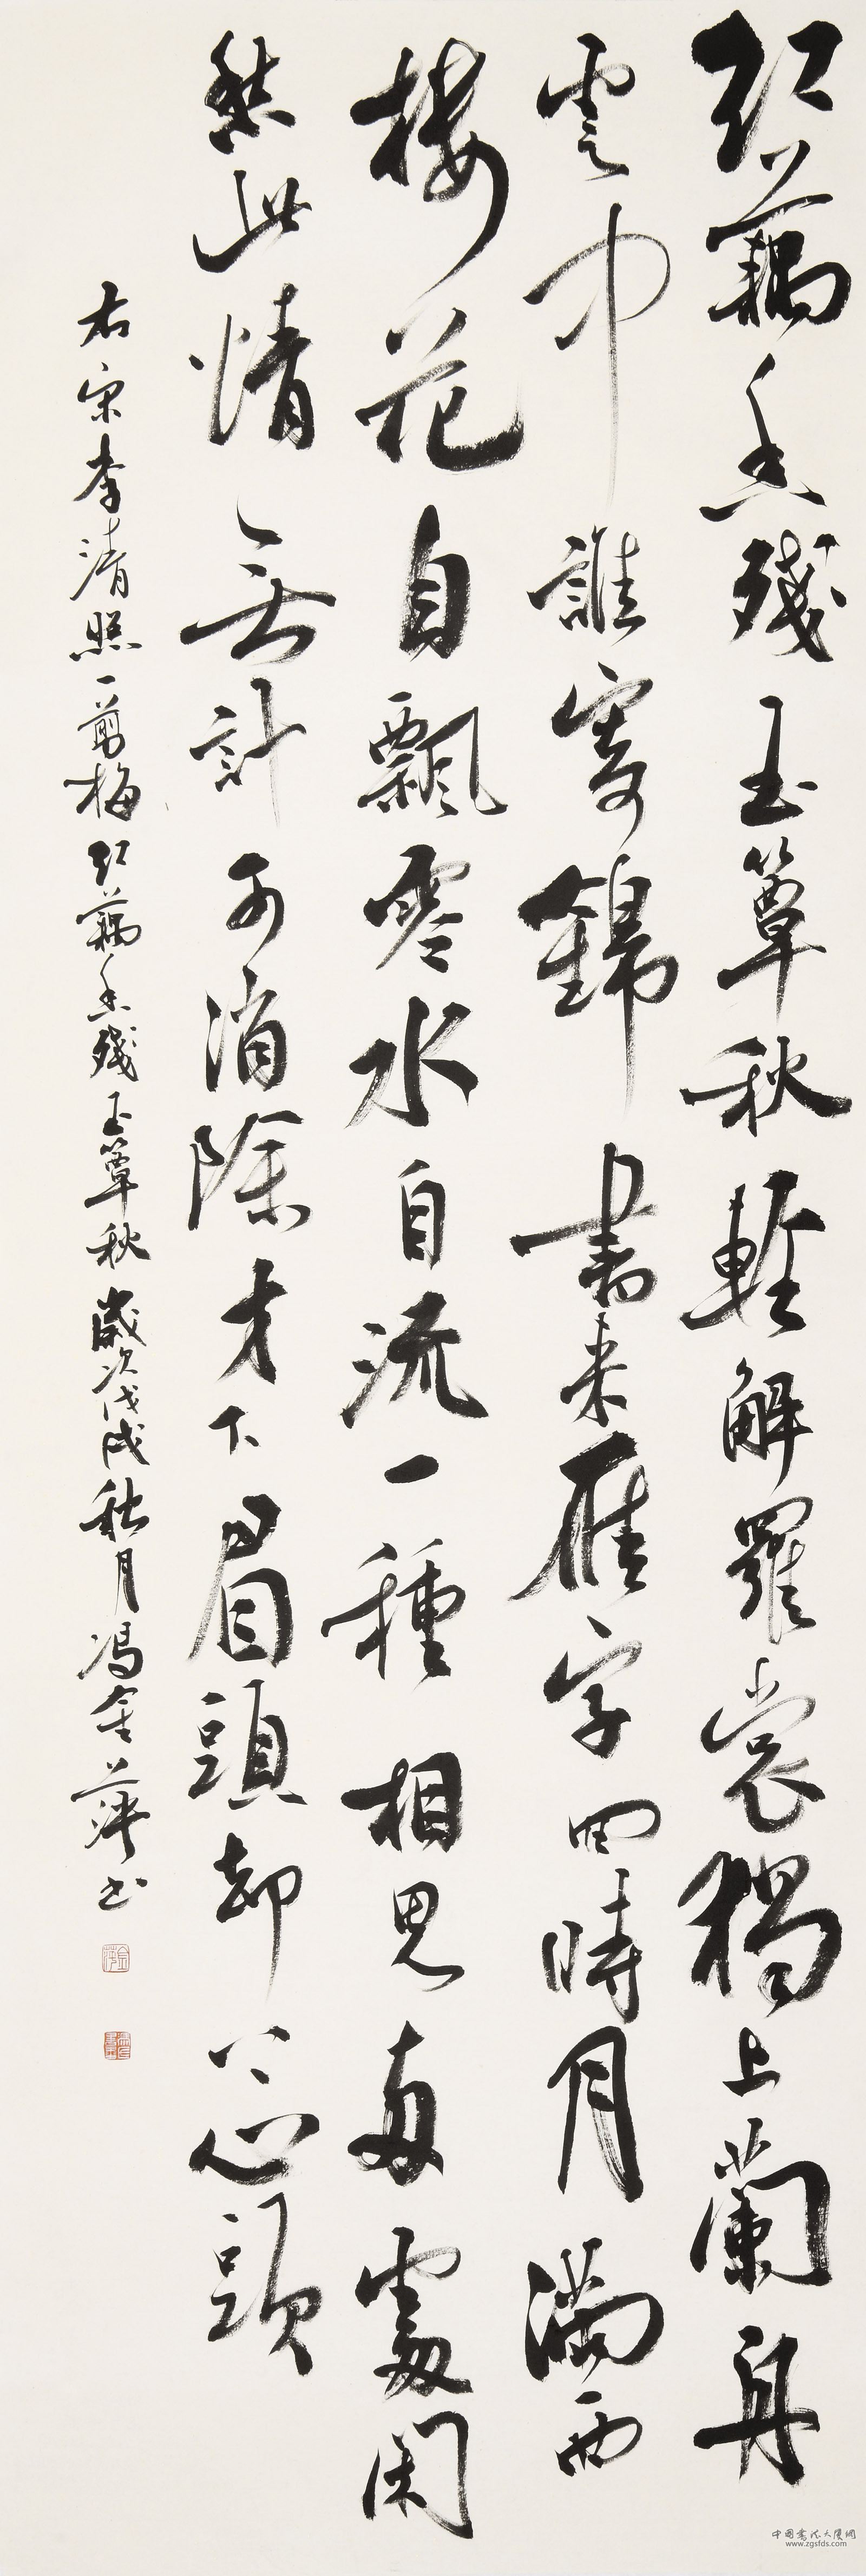 紅藕香殘玉簟秋輕解羅裳獨上蘭舟
雲中誰寄錦書来雁字回時月滿西
樓花自飄零水自流一種相思兩處閑
愁此情無計可消除才下眉頭却上心頭
右宋李清照一剪梅紅藕香殘玉簟秋歲次戊戌秋月馮金萍书
中國書法大廈網
www.zgsfds.com